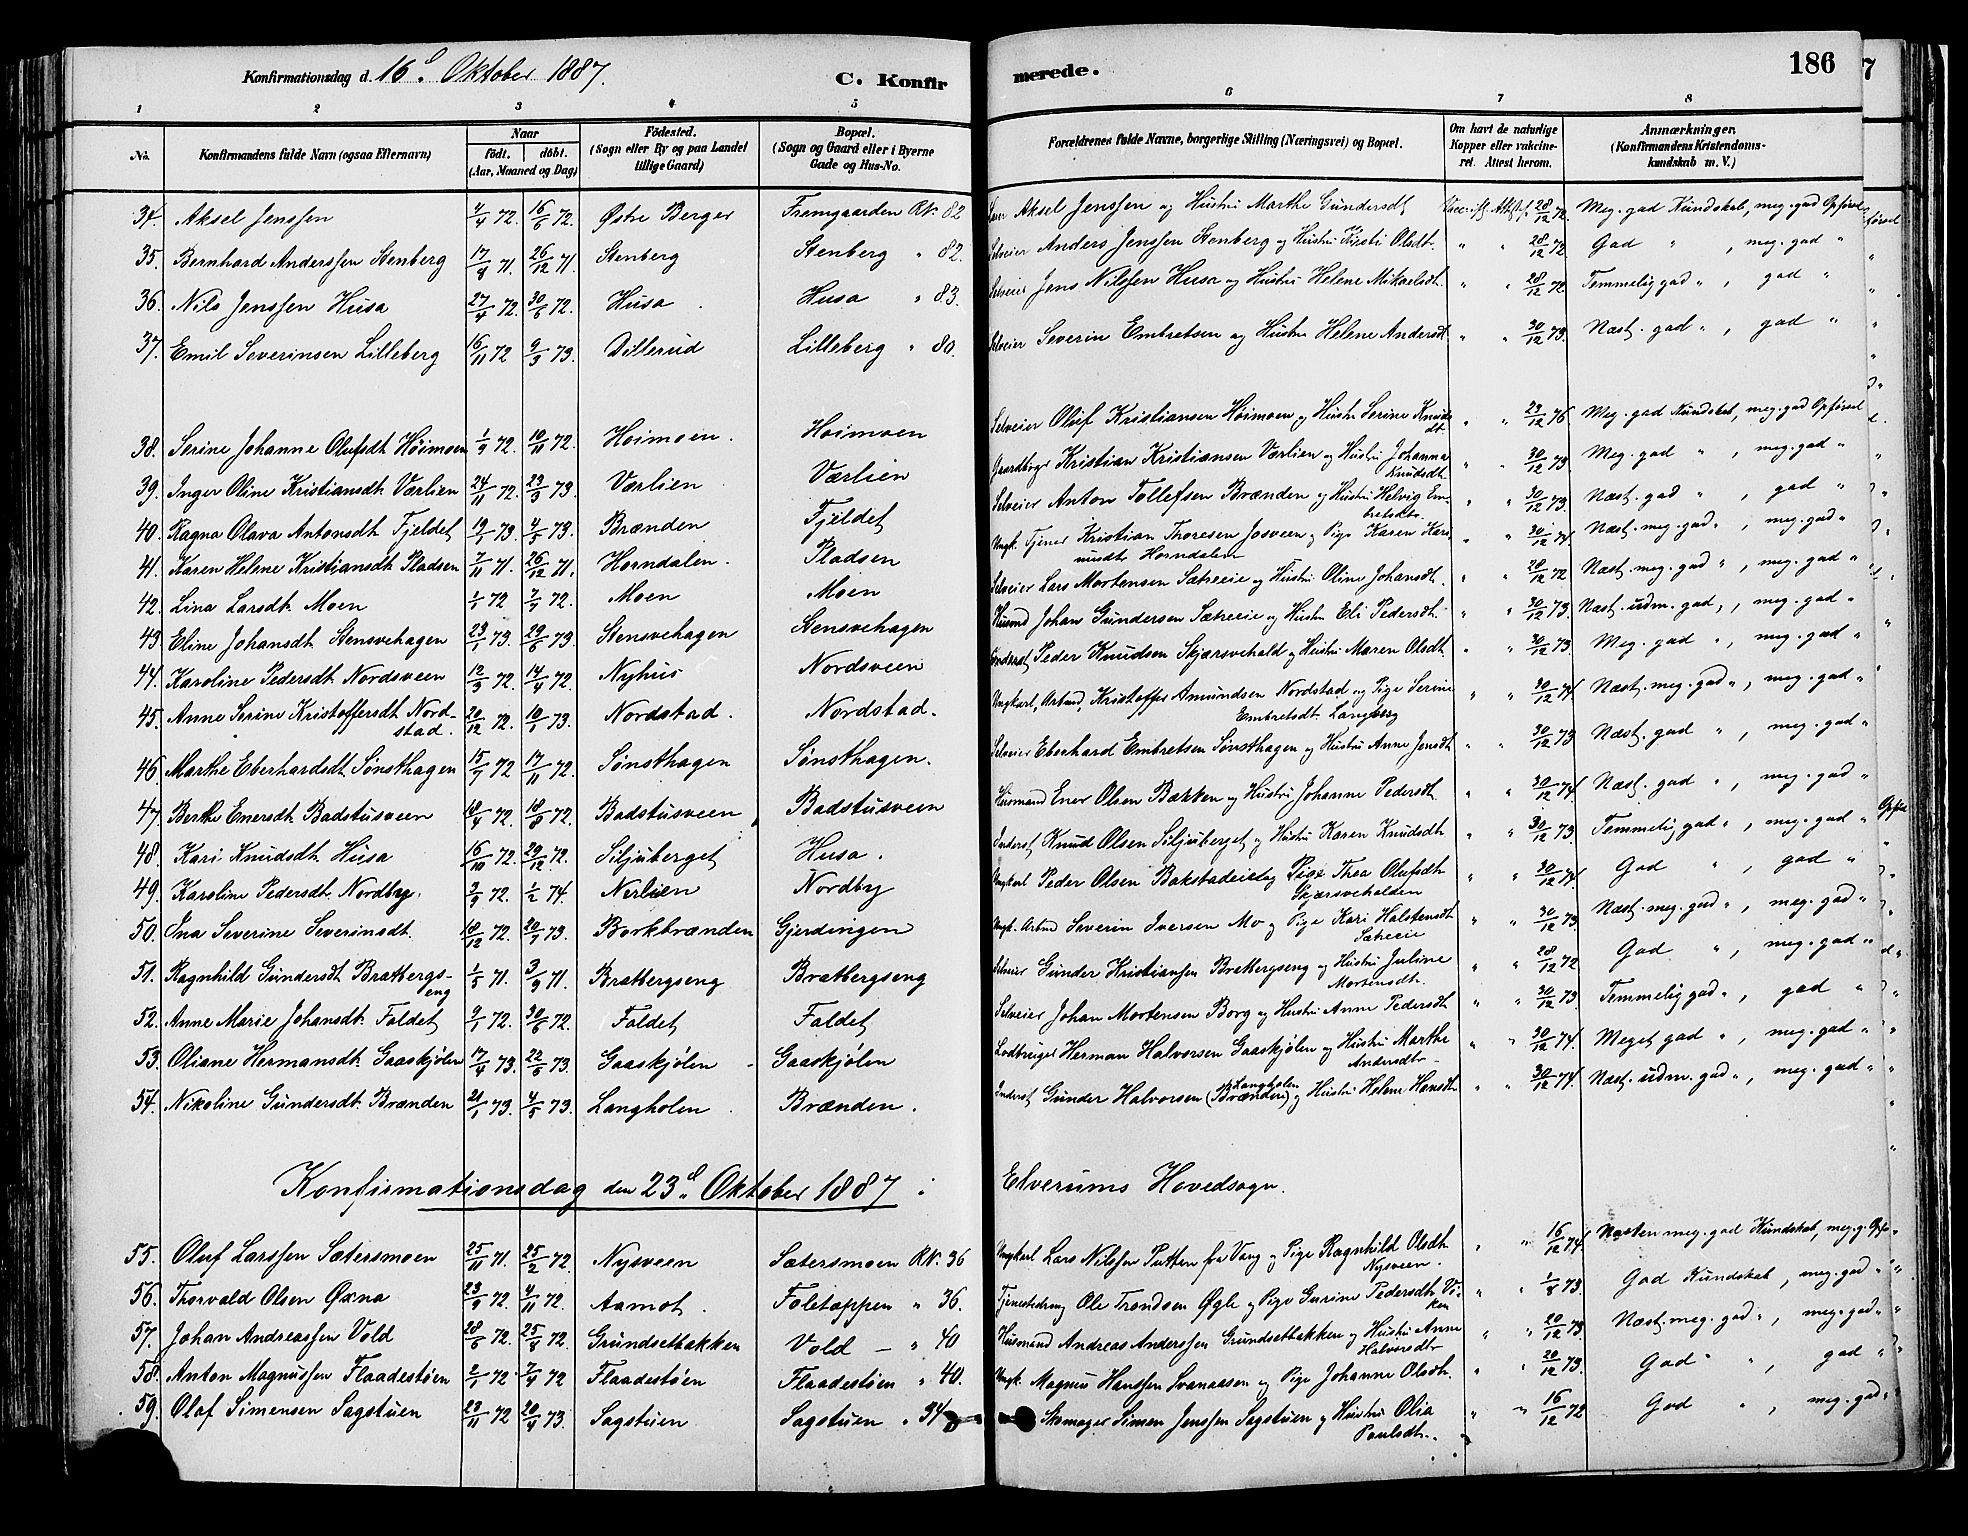 Konfirmationsdag d. 16d Oktober 1887.
C. Konfirmerede.
186
1 2 3 4 5 6 7 8
No.
Konfirmandens fulde Navn (ogsaa Efternavn)
Naar
født. døbt.
(Aar, Maaned og Dag)
Fødested.
(Sogn eller By og paa Landet
tillige Gaard)
Bopæl.
(Sogn og Gaard eller i Byerne
Gade og Hus-No.
Forældrenes fulde Navne, borgerlige Stilling (Næringsvei) og Bopæl.
Om havt de naturlige
Kopper eller vakcine-
ret. Attest herom.
Anmærkninger.
(Konfirmandens Kristendoms-
kundskab m. V.)
34. Aksel Jenssen 4/4 72. 16/6 72. Østre Berger Fremgaarden RN. 82 Aksel Jenssen og Hustru Marthe Gundersdt 28/12 72. Meg. god Kundskab, meg. god Opførsel
35. Bernhard Anderssen Stenberg 17/8 71. 26/12 71. Stenberg Stenberg " 82. Selveier Anders Jenssen Stenberg og Hustru Kirsti Olsdt. " " 28/12 72. God " , meg. god "
36. Nils Jenssen Husa 27/4 72. 30/6 72. Husa Husa " 83. Selveier Jens Nilssen Husa og Hustru Helene Mikaelsdt. " " 28/12 72 Temmelig god " , god "
37. Emil Severinsen Lilleberg 16/11 72 9/3 73. Dillerud Lilleberg " 80. Selveier Severin Embretsen og Hustru Helene Andersdt. " " 30/12 73. Næst. god " , god "
38. Serine Johanne Olufsdt Høimoen 1/9 72. 10/11 72. Høimoen. Høimoen Selveier Oluf Kristiansen Høimoen og Hustru Serine Knuds
dt. " " 23/12 76. Meg. god Kundskab, meg. god Opførsel
39. Inger Oline Kristiansdt. Værlien 24/11 72. 23/3 73. Værlien. Værlien Gaardbruger Kristian Kristiansen Værlien og Hustru Johanna
Knudsdt. " " 30/12 73 Meg. god " , meg. god "
40. Ragna Olava Antonsdt. Fjeldet 19/1 73. 4/5 73. Brænden Fjeldet Selveier Anton Tollefsen Brænden og Hustru Helvig Em-
bretsdt. " " 30/12 73. Næst. god " , god "
41. Karen Helene Kristiansdt. Pladsen 7/11 71. 26/12 71. Horndalen. Pladsen Ungk. Tjener Kristian Thoresen Josveen og Pige Karen Kari
nusdt Horndalen " " 30/12 74. Næst. meg. god " , meg. god "
42. Lina Larsdt. Moen 1/1 72 7/4 72. Moen Moen Selveier Lars Mortensen Sætreeie og Hustru Oline Johansdt. " " 28/12 72 Næst. meg. god " , meg. god "
43. Eline Johansdt. Stensvehagen 23/1 73. 29/6 73. Stensvehagen Stensvehagen Husmd Johan Gundersen Sætreeie og Hustru Eli Pedersdt. " " 30/12 73. Næst. udm. god, , meg. god "
44. Karoline Pedersdt. Nordsveen 12/3 72. 14/4 72. Nyhus Nordsveen Inderst Peder Knudsen Skjærsvehold og Hustru Maren Olsdt. " " 30/12 73 Meg. god " , meg. god "
45. Anne Serine Kristoffersdt. Nord-
stad. 20/12 72. 10/1 73. Nordstad. Nordstad. Ungkarl, Arbmd. Kristoffer Amundsen Nordstad og Pige Serine
Embretsdt. Langberg " " 30/12 74. Næst. meg. god " , meg. god "
46. Marthe Eberhardsdt. Sønsthagen 15/7 72 17/11 72. Sønsthagen Sønsthagen. Selveier Eberhard Embretsen Sønsthagen og Hustru Anne Jensdt " " 30/12 73 Næst. god " , meg. god "
47. Berthe Enersdt. Badstusveen 18/4 72. 18/8 72. Badstusveen Badstusveen Husmand Ener Olsen Bakken og Hustru Johanne Pedersdt. " " 30/12 74. Næst. god " , meg. god "
48. Kari Knudsdt. Husa 16/10 72. 29/12 72. Siljuberget Husa. Inderst Knud Olsen Siljuberget og Hustru Karen Knudsdt. " " 30/12 73. Temmelig god " , meg. god "
49. Karoline Pedersdt. Nordby. 3/9 72. 1/2 74. Nerlien Nordby Ungkarl Peder Olsen Bakstadeie og Pige Thea Olufsdt.
Skjærsveholden " " 30/12 74. God " , god "
50. Ina Severine Severinsdt. 18/12 72. 20/7 73. Borkbrænden Gjerdingen Ungk. Arbmd Severin Iversen Mo og Pige Kari Halstensdt
Sætreeie " " 30/12 73. Næst. meg. god " , meg. god "
51. Ragnhild Gundersdt Bratbergs-
eng 1/5 71. 3/9 71. Bratbergseng Bratbergseng Selveier Gunder Kristiansen Bratbergseng og Hustru Juline
Mortensdt. " " 28/12 72 God " , meg. god "
52. Anne Marie Johansdt. Faldet 9/1 72. 30/6 72. Faldet Faldet Selveier Johan Mortensen Borg og Hustru Anne Pedersdt " " 30/12 73 Temmelig god " , god "
53. Oliane Hermansdt. Gaaskjølen 17/4 73. 22/6 73. Gaaskjølen Gaaskjølen Lodbruger Herman Halvorsen Gaaskjølen og Hustru Marthe
Andersdt. " " 30/12 74. Meget god " , meg. god "
54. Nikoline Gundersdt. Brænden 21/1 73. 4/5 73. Langholen Brænden. Inderst Gunder Halvorsen (Langholen Brænden) og Hustru Helene Hansdt. " " 30/12 74 Næst. udm. god " , meg. god "
Konfirmationsdag den 23d Oktober 1887 i Elverums Hovedsogn.
55. Oluf Larssen Sætersmoen 25/11 71. 25/2 72. Nysveen Sætersmoen RN. 36 Ungkarl Lars Nilssen Putten fra Vang og Pige Ragnhild Olsdt.
Nysveen. " " 16/12 74 Næsten meg. god Kundskab, meg. g. Opfø
56. Thorvald Olsen Øxna 23/9 72. 4/11 72. Aamot. Foletappen " 36. Tjenestedreng Ole Trondsen Øgle og Pige Gurine Pedersdt. Vi-
ken " 1/8 73. God Kundskab, meg. god "
57. Johan Andreassen Vold 28/6 72. 25/8 72. Grundsetbakken Vold " 40 Husmand Andreas Anderssen Grundsetbakken og Hustru Anne
Halvorsdt. " " 20/12 73. Næst. meg. god " , meg. god "
58. Anton Magnussen Flaadestøen 2/1 72. 7/4 72 Flaadestøen Flaadestøen " 40. Ungk. Magnus Hanssen Svanaasen og Pige Johanne Olsdt. " " 20/12 73. God " , god "
59. Olaf Simensen Sagstuen 23/11 72 20/4 73. Sagstuen Sagstuen " 34 Skomager Simen Jenssen Sagstuen og Hustru Olia
Paulsdt. " " 16/12 72 God " , meg. god "